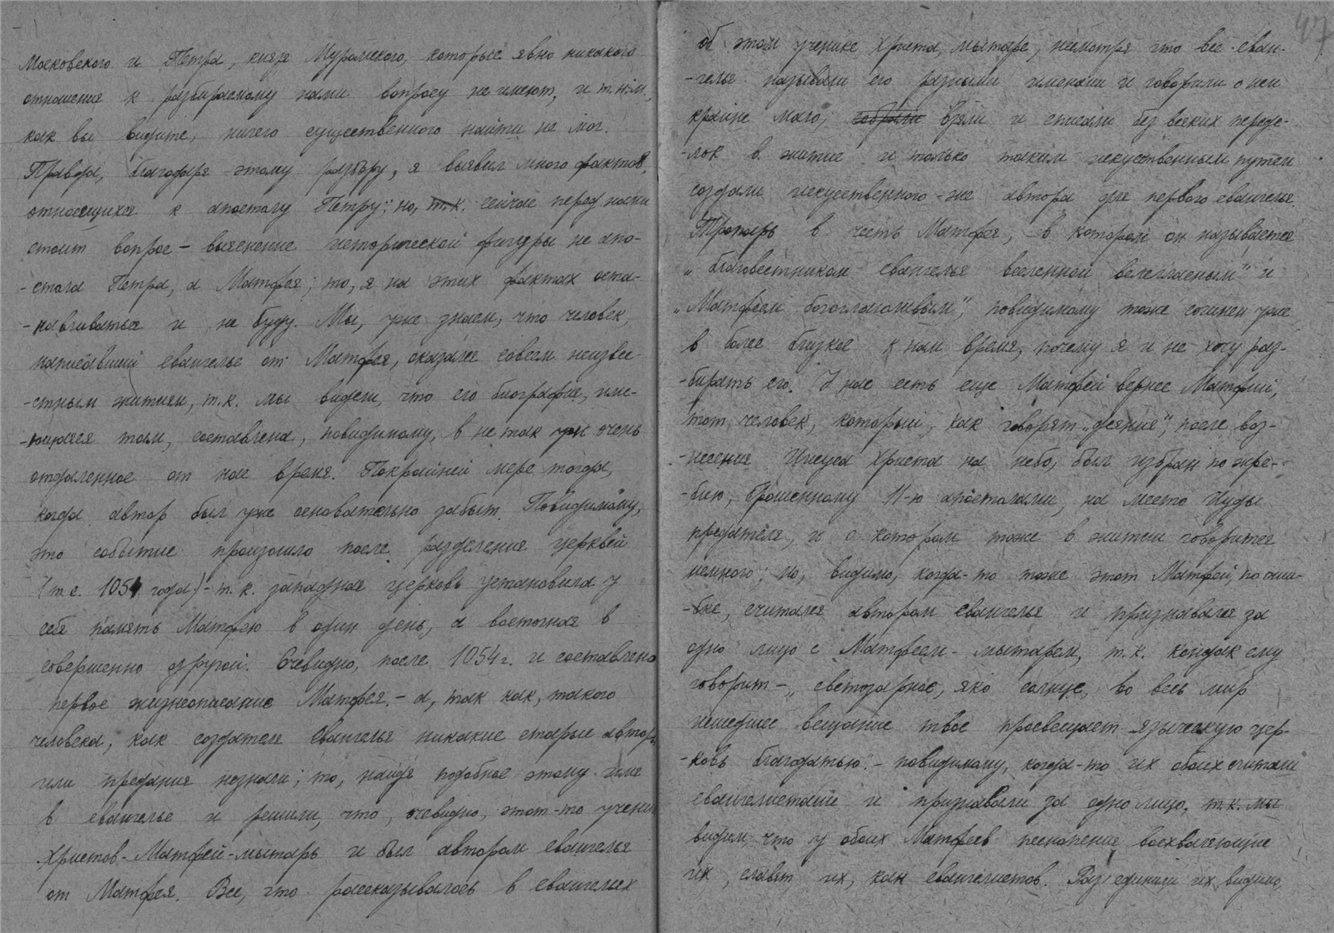 Московского и Петра, князя Муромского, которые явно никакого
отношение к разбираемому нами вопросу не имеют, и т. обр.,
как вы видите, ничего существенного найти не мог.
Правда, благодаря этому разбору, я выявил много фактов,
относящихся к апостолу Петру; но, т.к. сейчас перед нами
стоит вопрос – выяснение исторической фигуры не апо-
-стола Петра, а Матфея; то, я на этих фактах оста-
-навливаться и не буду. Мы, уже знаем, что человек
написавший евангелье от Матфея, оказался совсем неизве-
-стным житиям, т.к. мы видели, что его биография, име-
-ющаяся там, составлена, повидимому, в не так уж очень
отдаленное от нас время. По крайней мере тогда,
когда автор был уже основательно забыт. Повидимому,
это событие произошло после разделения церквей
(т.е. 1054 года) – т.к. западная церковь установила у
себя память Матфею в один день, а восточная в
совершенно другой. Очевидно, после 1054 г. и составлено
первое жизнеописание Матфея. – а, так как, такого
человека, как создателя Евангелья никакие старые автор
или предания не знали; то, найдя подобное этому имя
в евангелье и решили, что, очевидно, этот-то ученик
Христов – Матфей-мытарь и был автором евангелья
от Матфея. Все, что рассказывалось в евангельях
47
об этом ученике Христа, мытаре, несмотря что все еван-
-гелья называли его разными именами и говорили о нем
крайне мало, взяли и списали без всяких переде-
-лок в житие и только таким искусственным путем
создали искусственного же автора для первого евангелья
Тропарь в честь Матфея, в котором он называется
„благовестником евангелья вселенной велегласным" и
„Матфеем богоглаголивым", повидимому тоже сочинен уже
в более близкое к нам время, почему я и не хочу раз-
-бирать его. У нас есть еще Матфей вернее Матфий,
тот человек, который, как говорят „деяния", после воз-
-несения Иисуса Христа на небо, был избран по жре-
-бию, брошенному 11-ю апостолами, на место Иуды
предателя, и о котором тоже в житии говорится
немного; но, видимо, когда-то тоже этот Матфей, по оши-
-бке, считался автором евангелья и признавался за
одно лицо с Матфеем-мытарем, т.к. кондак ему
говорит – „светозарное, яко солнце, во весь мир
исшедшее вещание твое просвещает языческую цер-
-ковь благодатью" – повидимому, когда-то их обоих считали
евангелистами и признавали за одно лицо, т.к. мы
видим, что у обоих Матфеев песнопения восхваляющие
их, славят их, как евангелистов. Разъединили их, видимо,